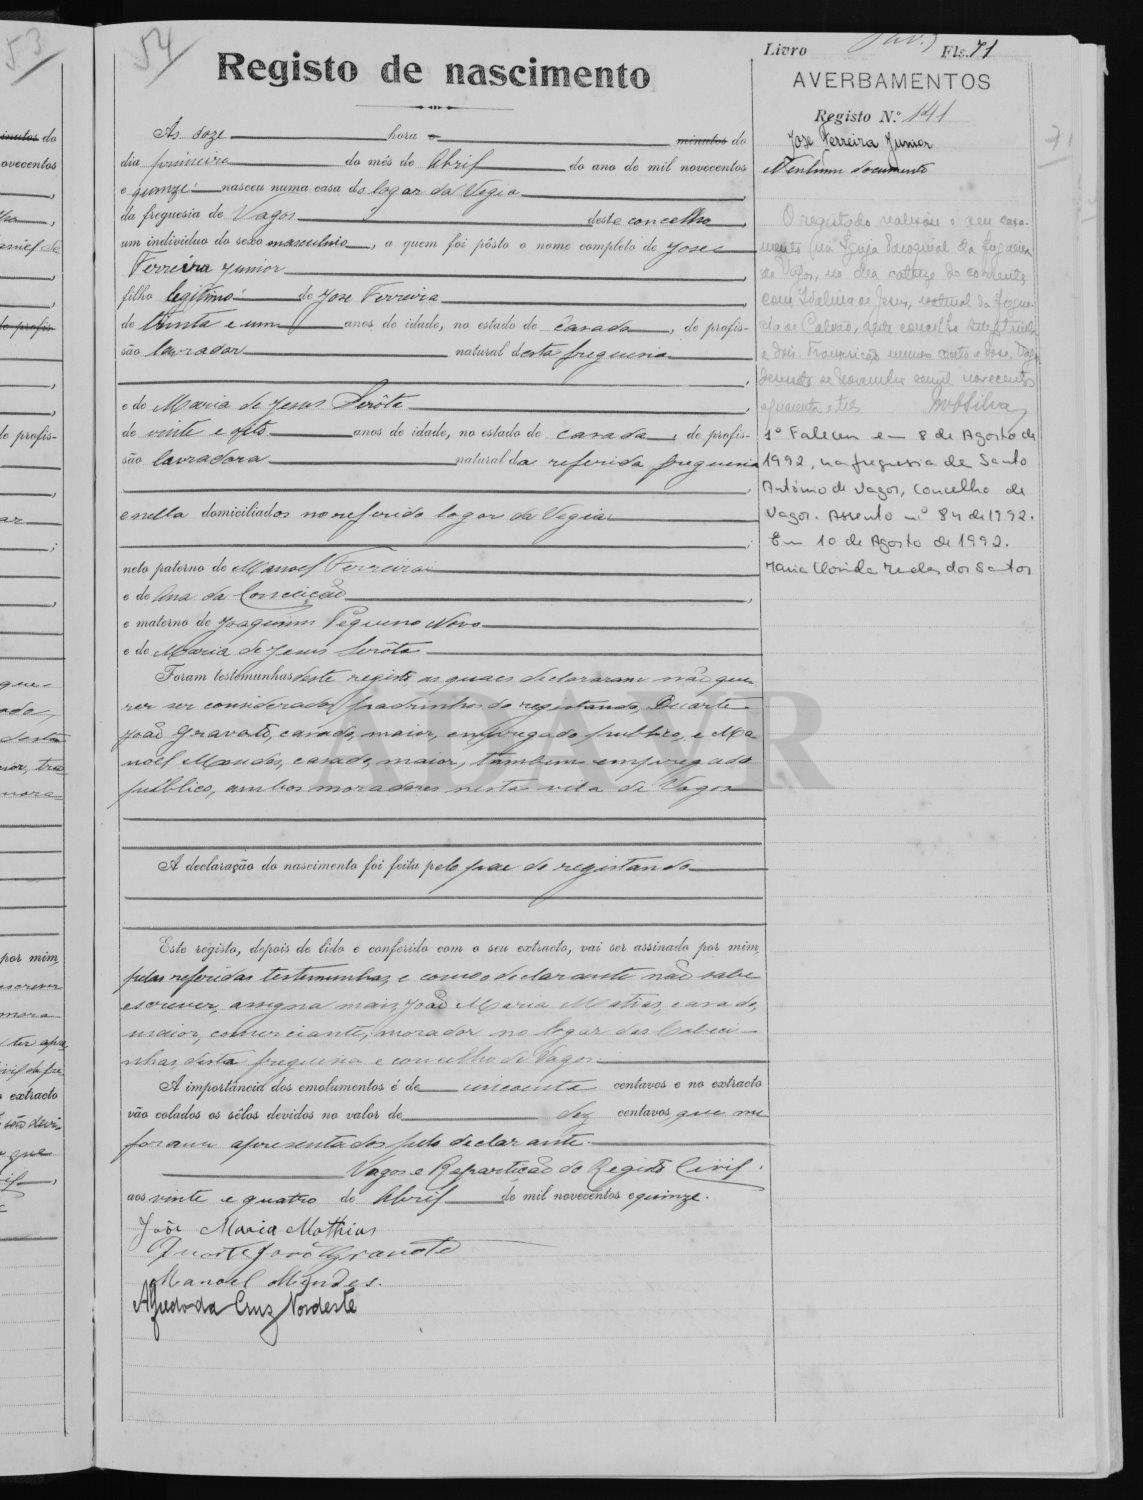 53
54
Registo de nascimento
Livro
Fls. 71
AVERBAMENTOS
Registo N.º 141
José Ferreira Junior
Nenhum documento
Ás doze hora minutos do
dia primeiro do mês de Abril do ano de mil novecentos
e quinze nasceu numa casa do logar da Vegia,
da freguesia de Vagos deste concelho,
um individuo do sexo masculino, a quem foi pôsto o nome completo de José
Ferreira Junior
filho legitimo de José Ferreira
de trinta e um anos de idade, no estado de casado, de profis-
são lavrador natural desta freguesia
e de Maria de Jesus Serôta,
de vinte e oito anos de idade, no estado de casada, de profis-
são lavradora natural da referida freguesia
e nella domiciliados no referido logar da Vegia
neto paterno de Manoel Ferreira
e de Ana da Conceição,
e materno de Joaquim Pequeno Novo
e de Maria de Jesus Serôta
Foram testemunhas deste registo, as quaes declararam não que-
rer ser considerados padrinhos do registando, Duarte
João Gravato, casado, maior, empregado publico, e Ma
noel Mendes, casado, maior, tambem empregado
publico, ambos moradores nesta vila de Vagos
A declaração do nascimento foi feita pelo pae do registando
Este registo, depois de lido e conferido com o seu extracto, vai ser assinado por mim,
pelas referidas testemunhas, e como o declarante não sabe
escrever, assigna mais João Maria Matias, casado,
maior, comerciante, morador no logar das Cabeci-
nhas, desta freguesia e concelho de Vagos
A importância dos emolumentos é de cincoenta centavos e no extracto
vão colados os sêlos devidos no valor de dez centavos, que me
foram apresentados pelo declarante.
Vagos e Repartição do Registo Civil.
aos vinte e quatro de Abril de mil novecentos e quinze.
João Maria Mathias
Duarte João Gravato
Manoel Mendes.
Alfredo da Cruz Nordeste
O registado realisou o seu casa-
mento na Igreja Paroquial da freguesia
de Vagos, no dia catorze do corrente,
com Idalina de Jesus, natural da fregue-
sia de Calvão, deste concelho
e dois. Transcrição numero cento e doze. Vagos
de Novembro de mil novecentos
quarenta e tres
1º Faleceu em 8 de Agosto de
1992, na freguesia de Santo
António de Vagos, Concelho de
Vagos. Assento nº 84 de 1992.
Em 10 de Agosto de 1992.
Maria dos Santos
ADAVR